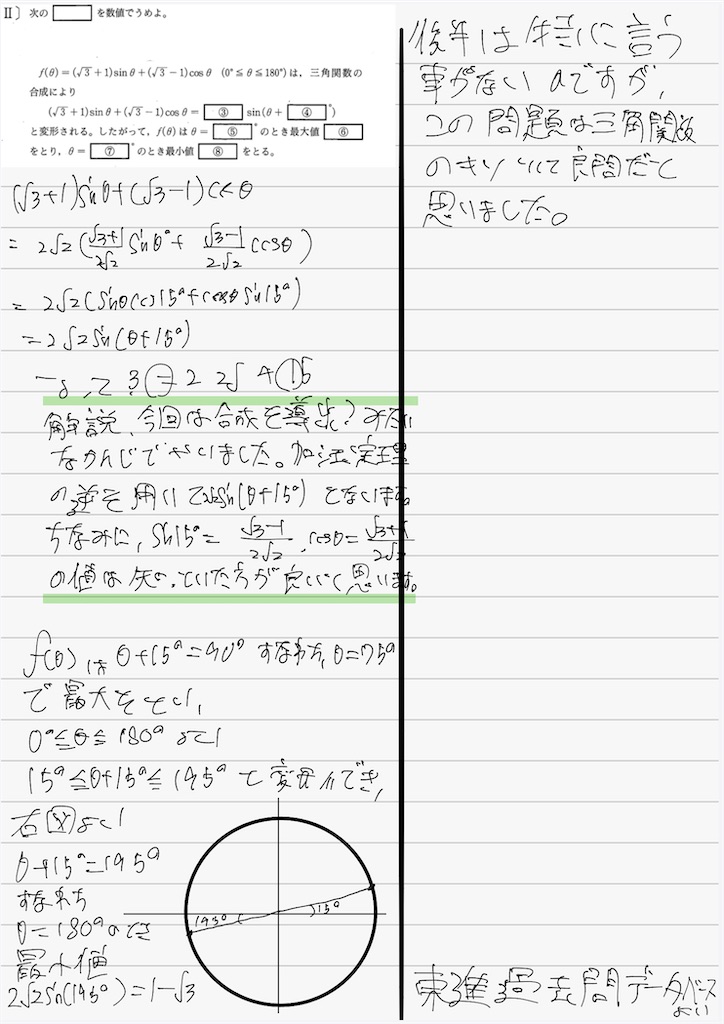 II] 次の □ を数値でうめよ。
f(θ)=(√3+1)sinθ+(√3−1)cosθ (0°≦θ≦180°)は、三角関数の
合成により
(√3+1)sinθ+(√3−1)cosθ= ③ sin(θ+ ④ °)
と変形される。したがって、f(θ)はθ= ⑤ °のとき最大値 ⑥
をとり、θ= ⑦ °のとき最小値 ⑧ をとる。
(√3+1)sinθ+(√3−1)cosθ
= 2√2(√3+1/2√2 sinθ°+ √3−1/2√2 cosθ)
= 2√2(sinθcos15°+cosθsin15°)
= 2√2sin(θ+15°)
よって ③ = 2√2 ④ 15
解説、今回は合成を導出?みたい
なかんじでやりました。加法定理
の逆を用いて2√2sin(θ+15°)となります。
ちなみに、sin15°= √3−1/2√2 , cosθ= √3+1/2√2
の値は知っていた方が良いと思います。
f(θ)は θ+15°=90° すなわち, θ=75°
で最大をとり,
0°≦θ≦180°より
15°≦θ+15°≦195°と変形でき,
右図より
θ+15°=195°
すなわち
θ=180°のとき
最小値
2√2sin(195°)=1−√3
195°
15°
後半は特に言う
事がないのですが,
この問題は三角関数
のキソについて良問だと
思いました。
東進過去問データベース
より